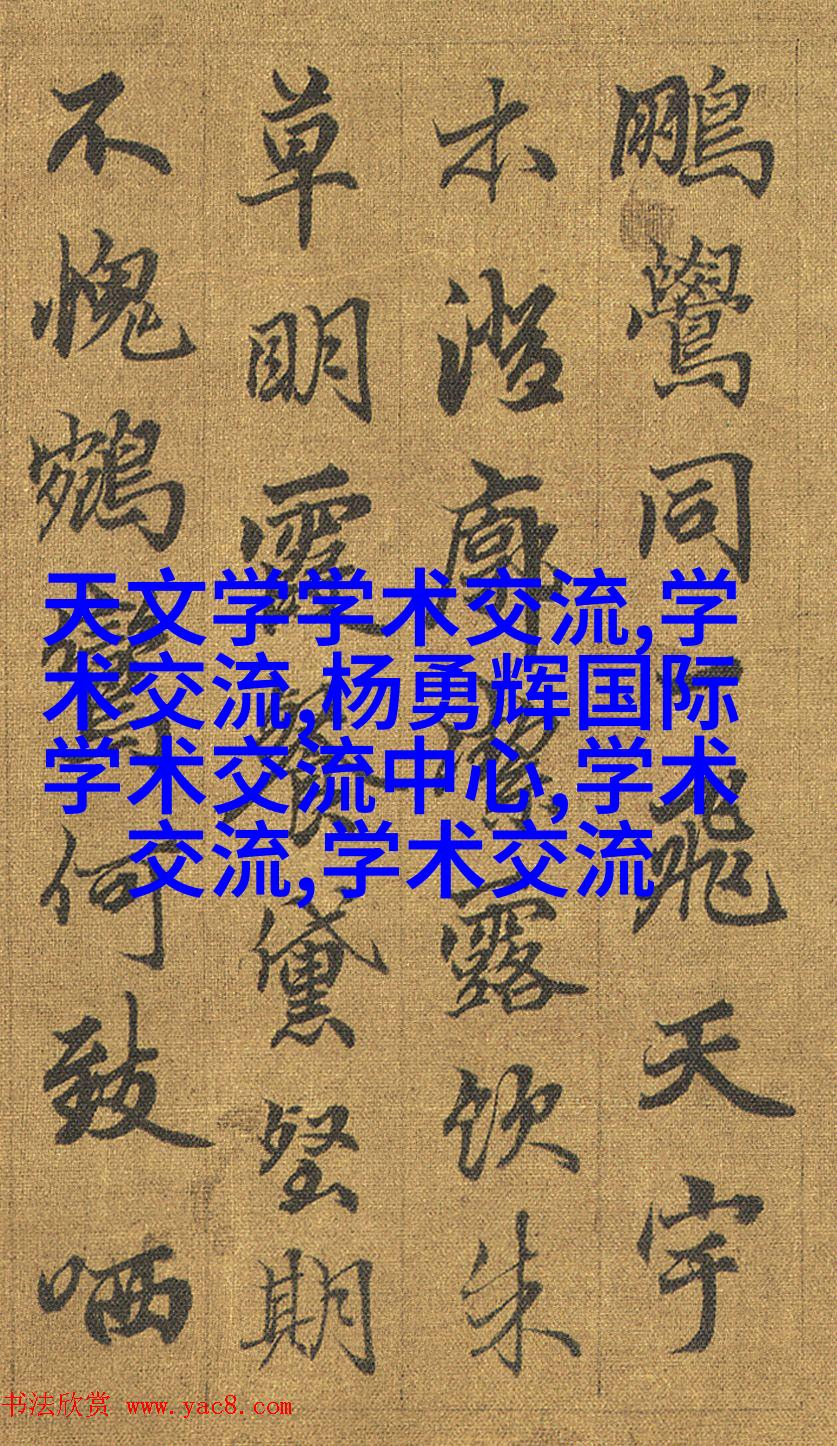 鵬鷽同一飛天宇
本澄廓潔露飲朱
草明霞餐黛堅期
不愧鶴鸞何致哂
天文学学术交流,学
术交流,杨勇辉国际
学术交流中心,学术
交流,学术交流
书法欣赏 www.yac8.com